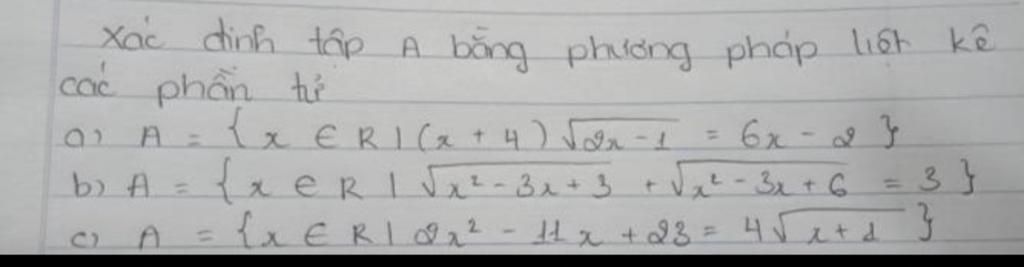 Xác định tập A bằng phương pháp liệt kê
các phần tử
a) A = { x ∈ R | (x + 4) √(2x - 1) = 6x - 2 }
b) A = { x ∈ R | √(x² - 3x + 3) + √(x² - 3x + 6) = 3 }
c) A = { x ∈ R | 2x² - 11x + 23 = 4√(x + 1) }